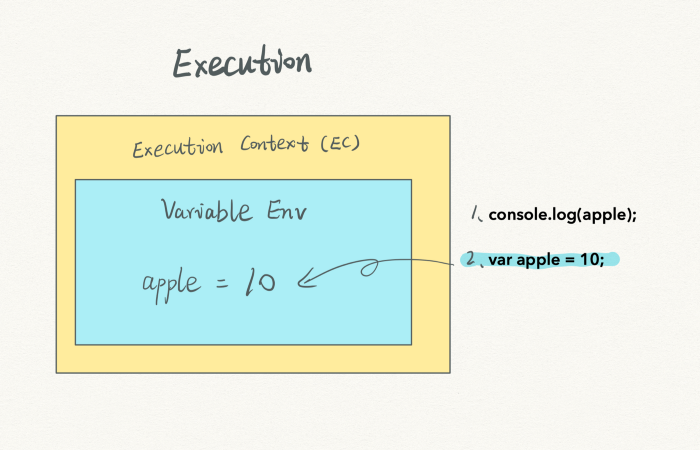 Execution
Execution Context (EC)
Variable Env
apple = 10
1、console.log(apple);
2、var apple = 10;